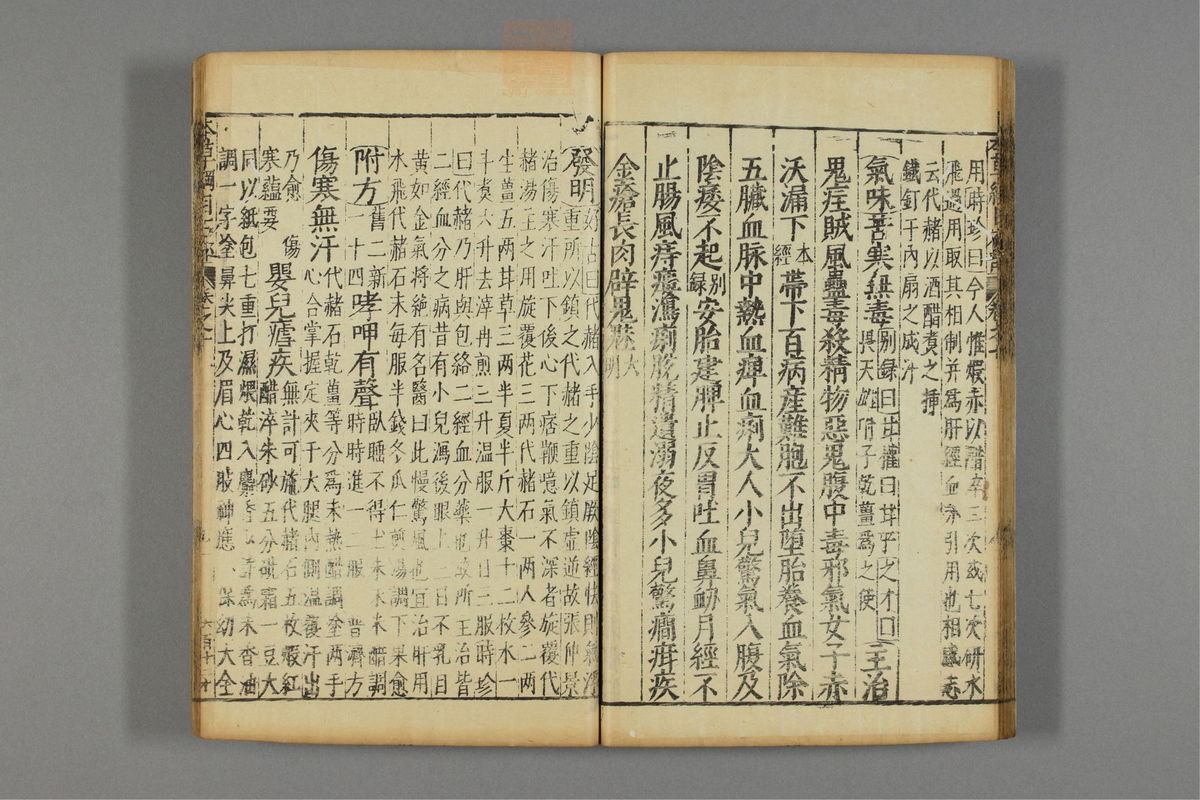 用時珍曰今人惟煆赤以醋淬三次或七次研水
飛過用取其相制并為肝經血分引用也相感志
云代赭以酒醋煮之插
鐵釘于內扇之成汁
氣味苦寒無毒別錄曰甘權曰甘平之才曰主治
畏天雄附子乾薑為之使
鬼疰賊風蠱毒殺精物惡鬼腹中毒邪氣女子赤
沃漏下本經帶下百病產難胞不出墮胎養血氣除
五臟血脉中熱血痺血痢大人小兒驚氣入腹及
陰痿不起別錄安胎建脾止反胃吐血鼻衄月經不
止腸風痔瘻瀉痢脫精遺溺夜多小兒驚癇疳疾
金瘡長肉辟鬼魅大明
發明好古曰代赭入手少陰足厥陰經怯則氣浮
重所以鎮之代赭之重以鎮虛逆故張仲景
治傷寒汗吐下後心下痞鞕噫氣不深者旋覆代
赭湯主之用旋覆花三兩代赭石一兩人參二兩
生薑五兩甘草三兩半夏半斤大棗十二枚水一
斗煮六升去滓再煎三升温服一升日三服時珍
曰代赭乃肝與包絡二經血分藥也故所主治皆
二經血分之病昔有小兒瀉後眼上三日不乳目
黃如金氣將絕有名醫曰此慢驚風也宜治肝用
水飛代赭石末每服半錢冬瓜仁煎湯調下果愈
附方舊二新一十四哮呷有聲臥睡不得土朱末醋調
時時進一二服 普濟方
傷寒無汗代赭石乾薑等分為末熱醋調塗兩手
心合掌握定夾于大腿內側温覆汗出
乃愈 傷寒蘊要嬰兒瘧疾無計可施代赭石五枚煆紅
醋淬朱砂五分砒霜一豆大
同以紙包七重打濕煨乾入麝香少許為末香油
調一字塗鼻尖上及眉心四肢神應 保幼大全